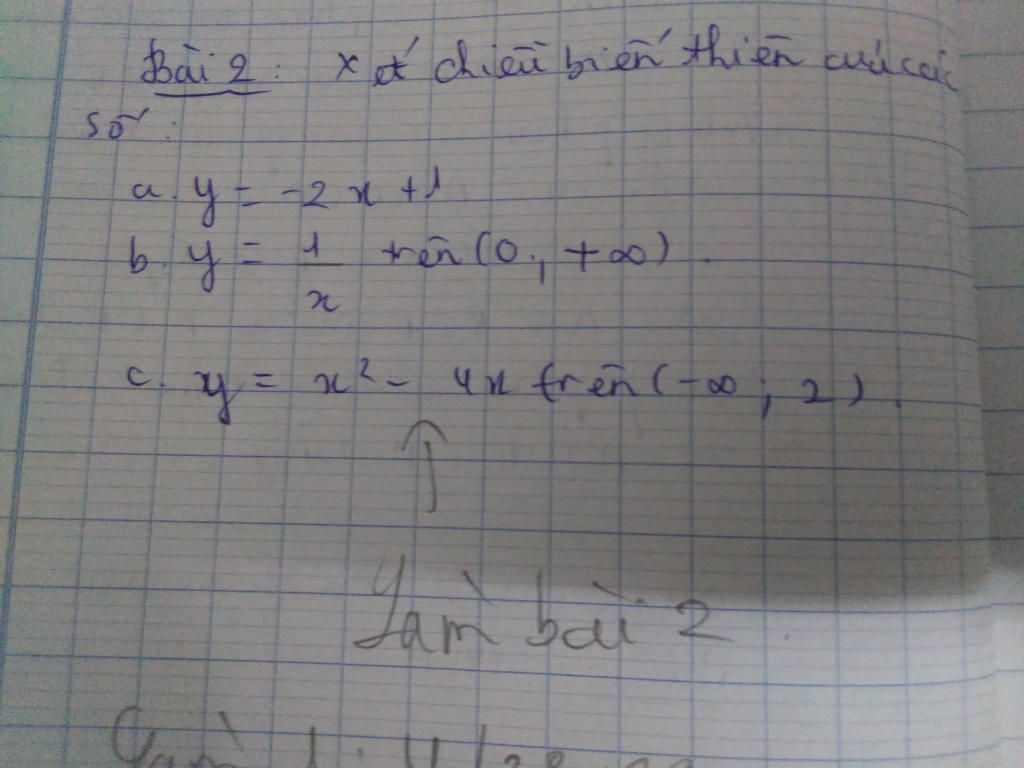 Bài 2: Xét chiều biến thiên của các
số:
a. y = -2x + 1
b. y = 1/x trên (0; +∞).
c. y = x² - 4x trên (-∞; 2).
Làm bài 2